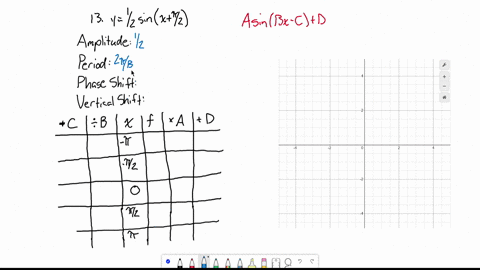 13. y=½ sin(x+π/2)
Asin(Bx-C)+D
Amplitude: ½
Period: 2π/B
Phase Shift:
Vertical Shift:
+C ÷B x f ×A +D
-π
-π/2
0
π/2
π